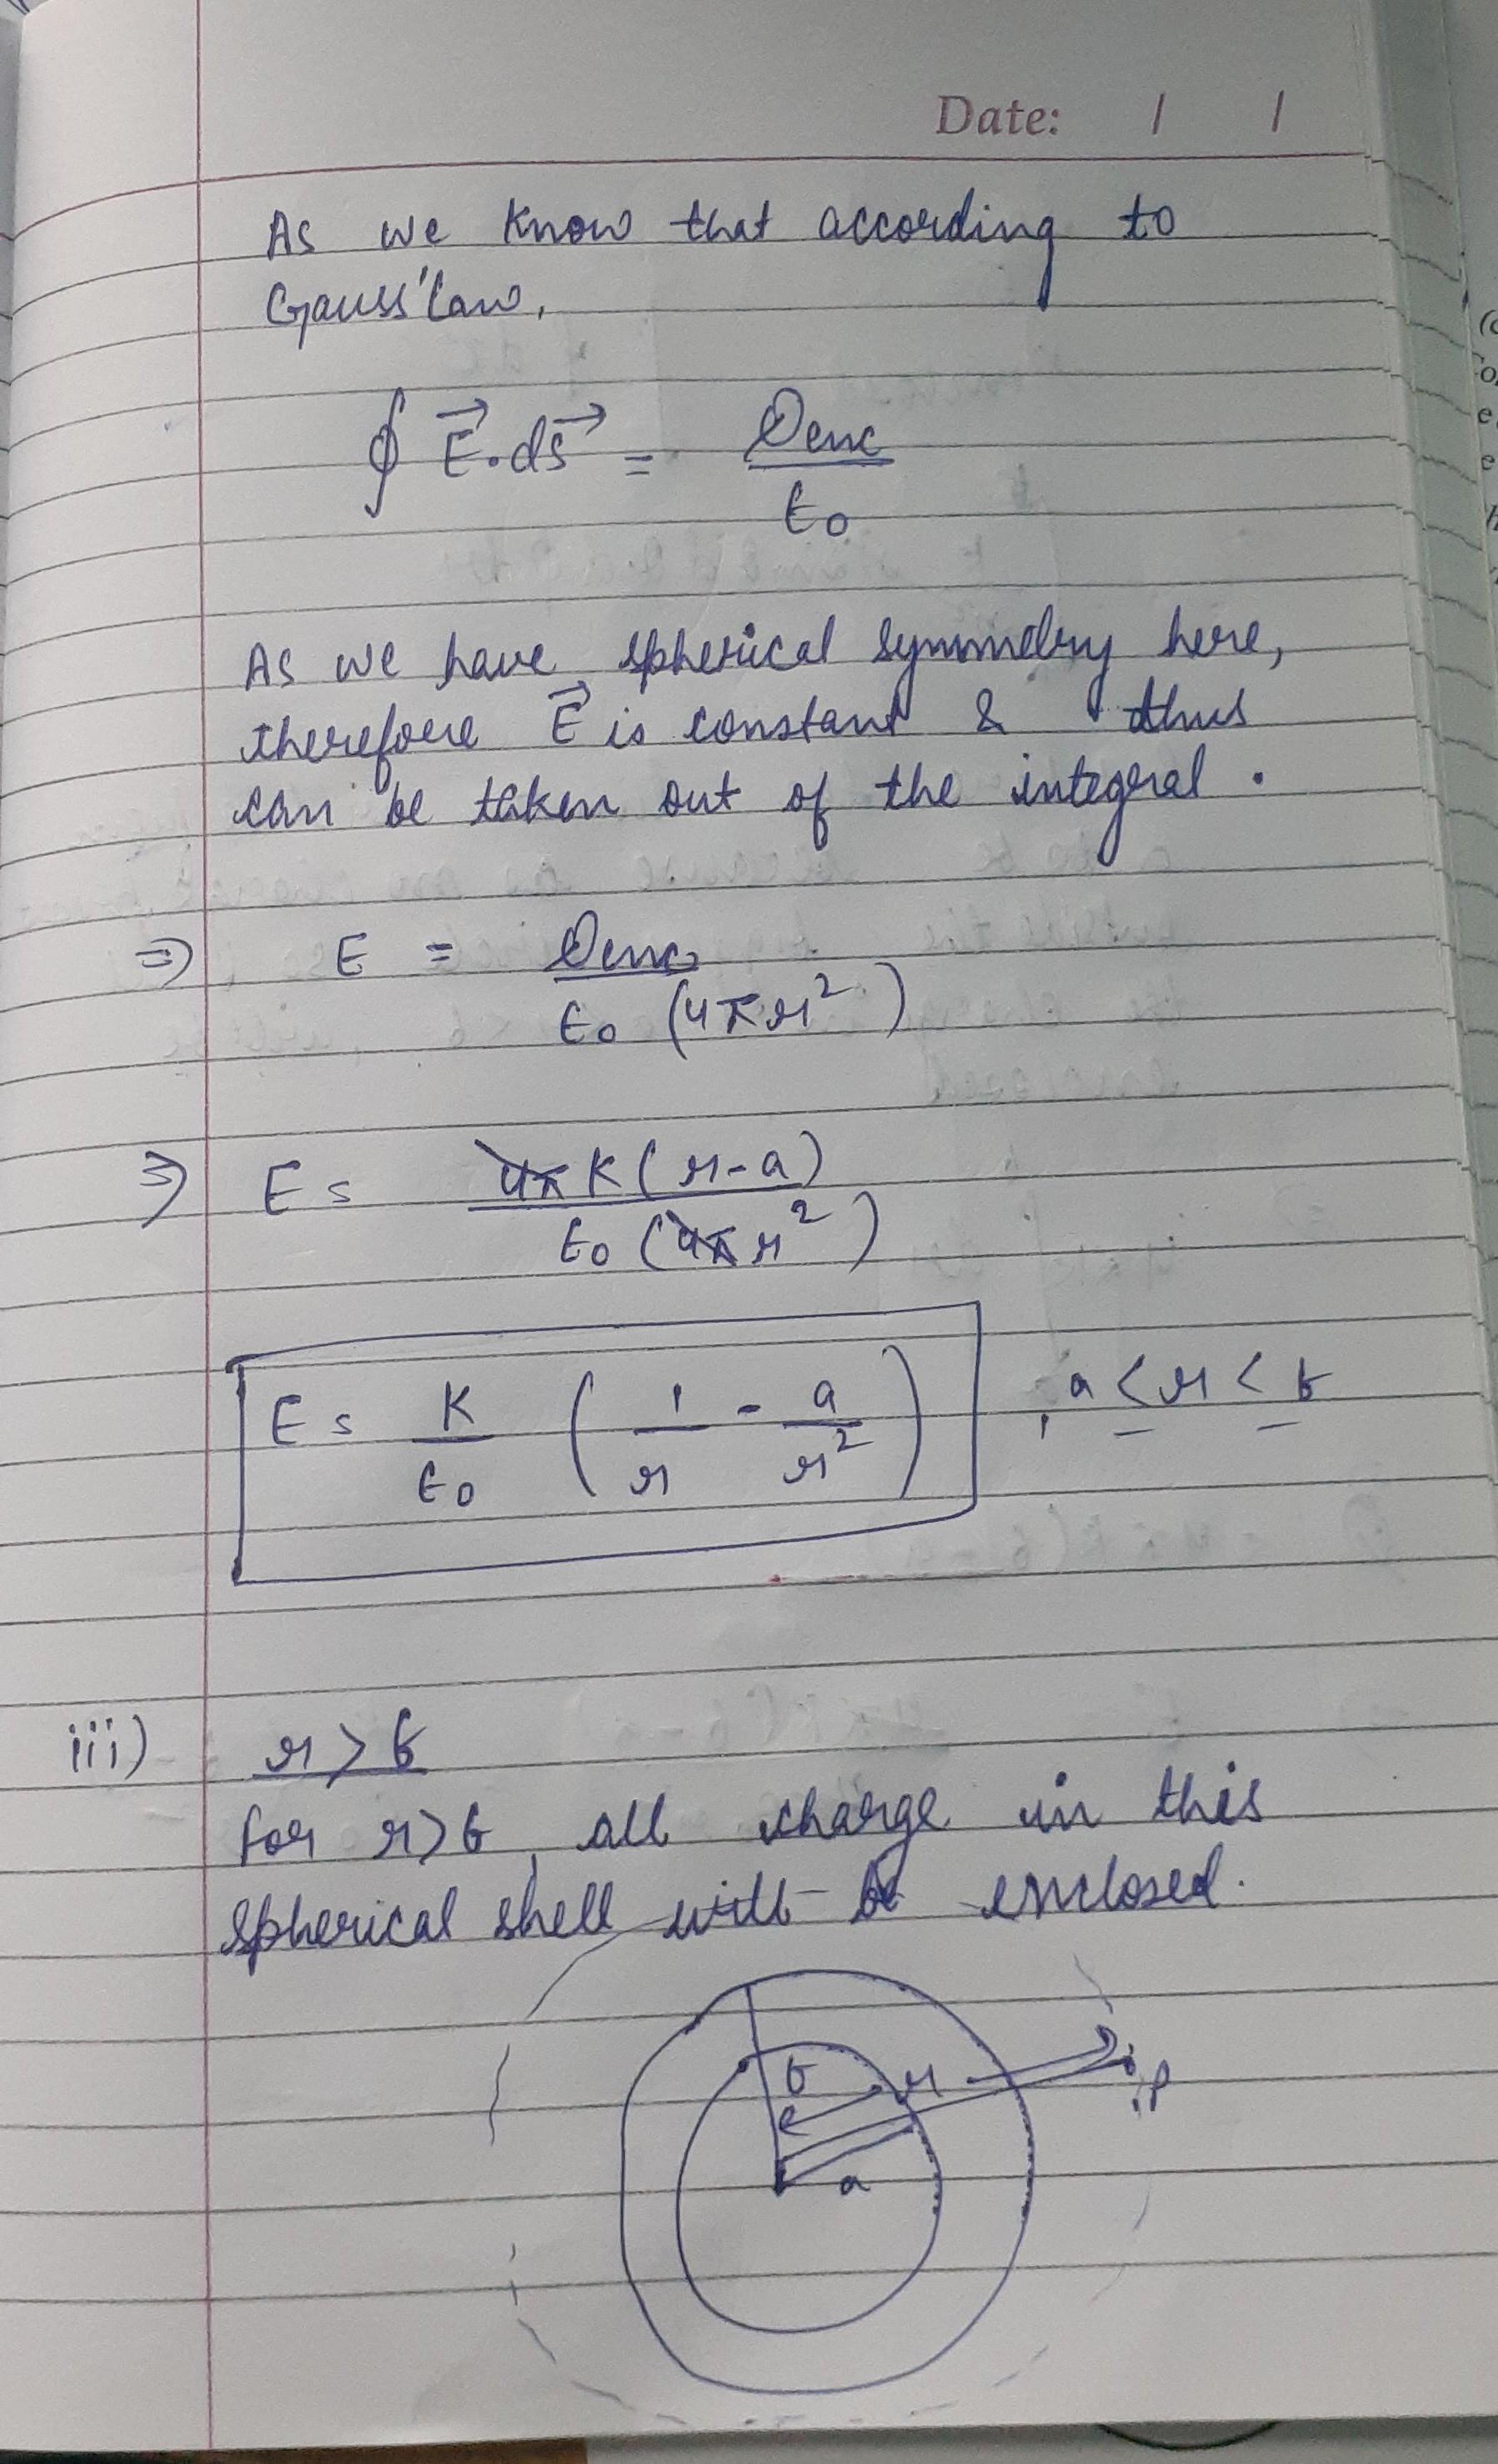 Date: / /
As we know that according to
Gauss' law,
∮ E⃗.ds⃗ = Qenc / ε0
As we have spherical symmetry here,
therefore E⃗ is constant & thus
can be taken out of the integral.
⇒ E = Qenc / ε0 (4πr²)
⇒ E = 4π K (r-a) / ε0 (4πr²)
E = K/ε0 (1/r - a/r²) , a ≤ r ≤ b
iii) r > b
for r>b, all charge in this
spherical shell will be enclosed.
b
r
P
a